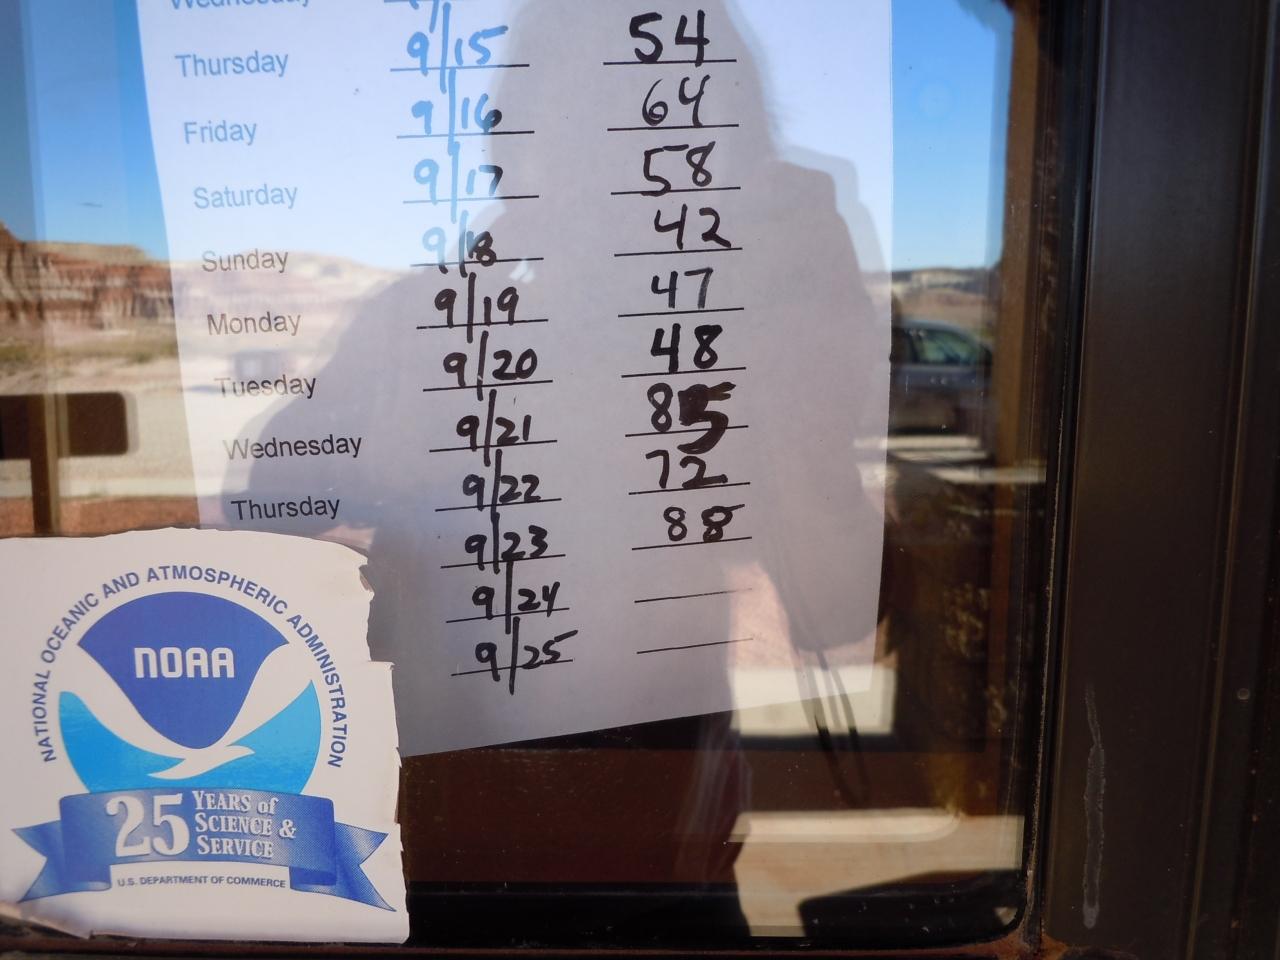 Wednesday
Thursday 9/15 54
Friday 9/16 64
Saturday 9/17 58
Sunday 9/18 42
Monday 9/19 47
Tuesday 9/20 48
Wednesday 9/21 85
Thursday 9/22 72
9/23 88
9/24
9/25
NATIONAL OCEANIC AND ATMOSPHERIC ADMINISTRATION
NOAA
25 YEARS of
SCIENCE &
SERVICE
U.S. DEPARTMENT OF COMMERCE